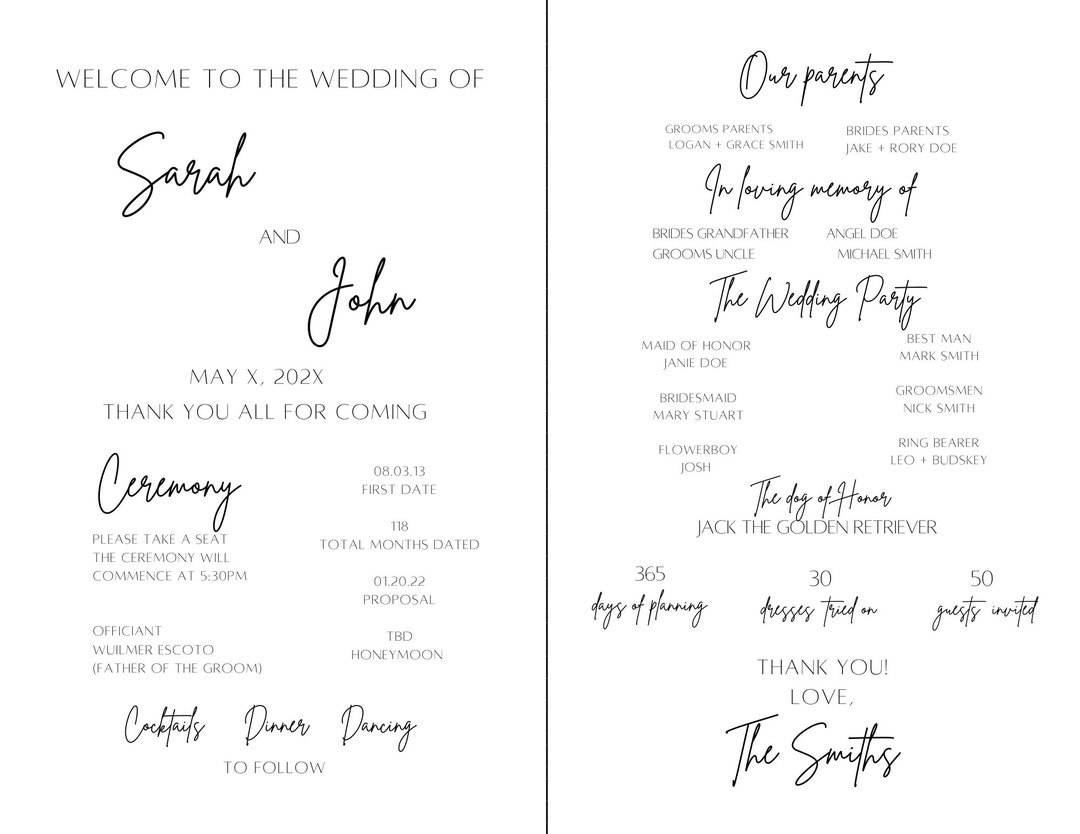 WELCOME TO THE WEDDING OF
Sarah
AND
John
MAY X, 202X
THANK YOU ALL FOR COMING
Ceremony
PLEASE TAKE A SEAT
THE CEREMONY WILL
COMMENCE AT 5:30PM
OFFICIANT
WUILMER ESCOTO
(FATHER OF THE GROOM)
08.03.13
FIRST DATE
118
TOTAL MONTHS DATED
01.20.22
PROPOSAL
TBD
HONEYMOON
Cocktails Dinner Dancing
TO FOLLOW
Our parents
GROOMS PARENTS
LOGAN + GRACE SMITH
BRIDES PARENTS
JAKE + RORY DOE
In loving memory of
BRIDES GRANDFATHER ANGEL DOE
GROOMS UNCLE MICHAEL SMITH
The Wedding Party
MAID OF HONOR
JANIE DOE
BRIDESMAID
MARY STUART
FLOWERBOY
JOSH
BEST MAN
MARK SMITH
GROOMSMEN
NICK SMITH
RING BEARER
LEO + BUDSKEY
The dog of Honor
JACK THE GOLDEN RETRIEVER
365
days of planning
30
dresses tried on
50
guests invited
THANK YOU!
LOVE,
The Smiths